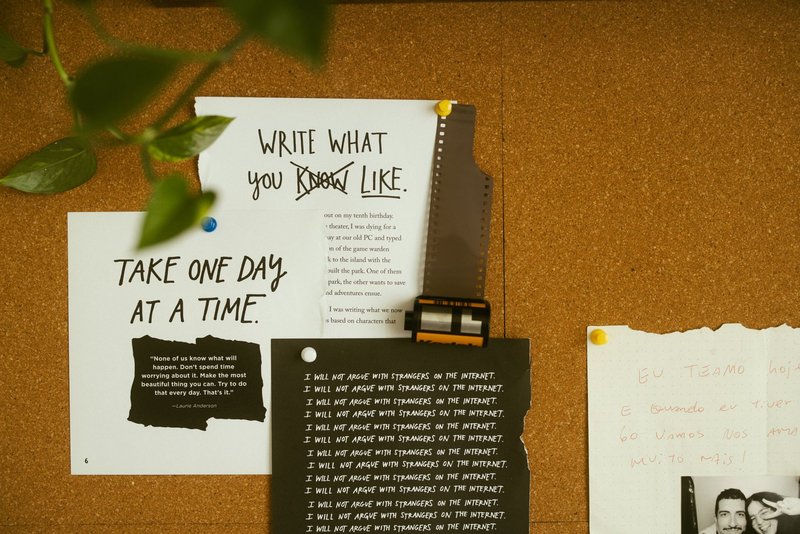 WRITE WHAT
YOU KNOW LIKE.
out on my tenth birthday.
theater, I was dying for a
ay at our old PC and typed
n of the game warden
k to the island with the
built the park. One of them
park, the other wants to save
nd adventures ensue.
I was writing what we now
s based on characters that
TAKE ONE DAY
AT A TIME.
“None of us know what will
happen. Don’t spend time
worrying about it. Make the most
beautiful thing you can. Try to do
that every day. That’s it.”
—Laurie Anderson
6
I WILL NOT ARGUE WITH STRANGERS ON THE INTERNET.
I WILL NOT ARGUE WITH STRANGERS ON THE INTERNET.
I WILL NOT ARGUE WITH STRANGERS ON THE INTERNET.
I WILL NOT ARGUE WITH STRANGERS ON THE INTERNET.
I WILL NOT ARGUE WITH STRANGERS ON THE INTERNET.
I WILL NOT ARGUE WITH STRANGERS ON THE INTERNET.
I WILL NOT ARGUE WITH STRANGERS ON THE INTERNET.
I WILL NOT ARGUE WITH STRANGERS ON THE INTERNET.
I WILL NOT ARGUE WITH STRANGERS ON THE INTERNET.
I WILL NOT ARGUE WITH STRANGERS ON THE INTERNET.
I WILL NOT ARGUE WITH STRANGERS ON THE INTERNET.
I WILL NOT ARGUE WITH STRANGERS ON THE INTERNET.
I WILL NOT ARGUE WITH STRANGERS ON THE INTERNET.
EU TEAMO hoj
E Quando eu tiver
60 vamos nos AMA
muito mais!